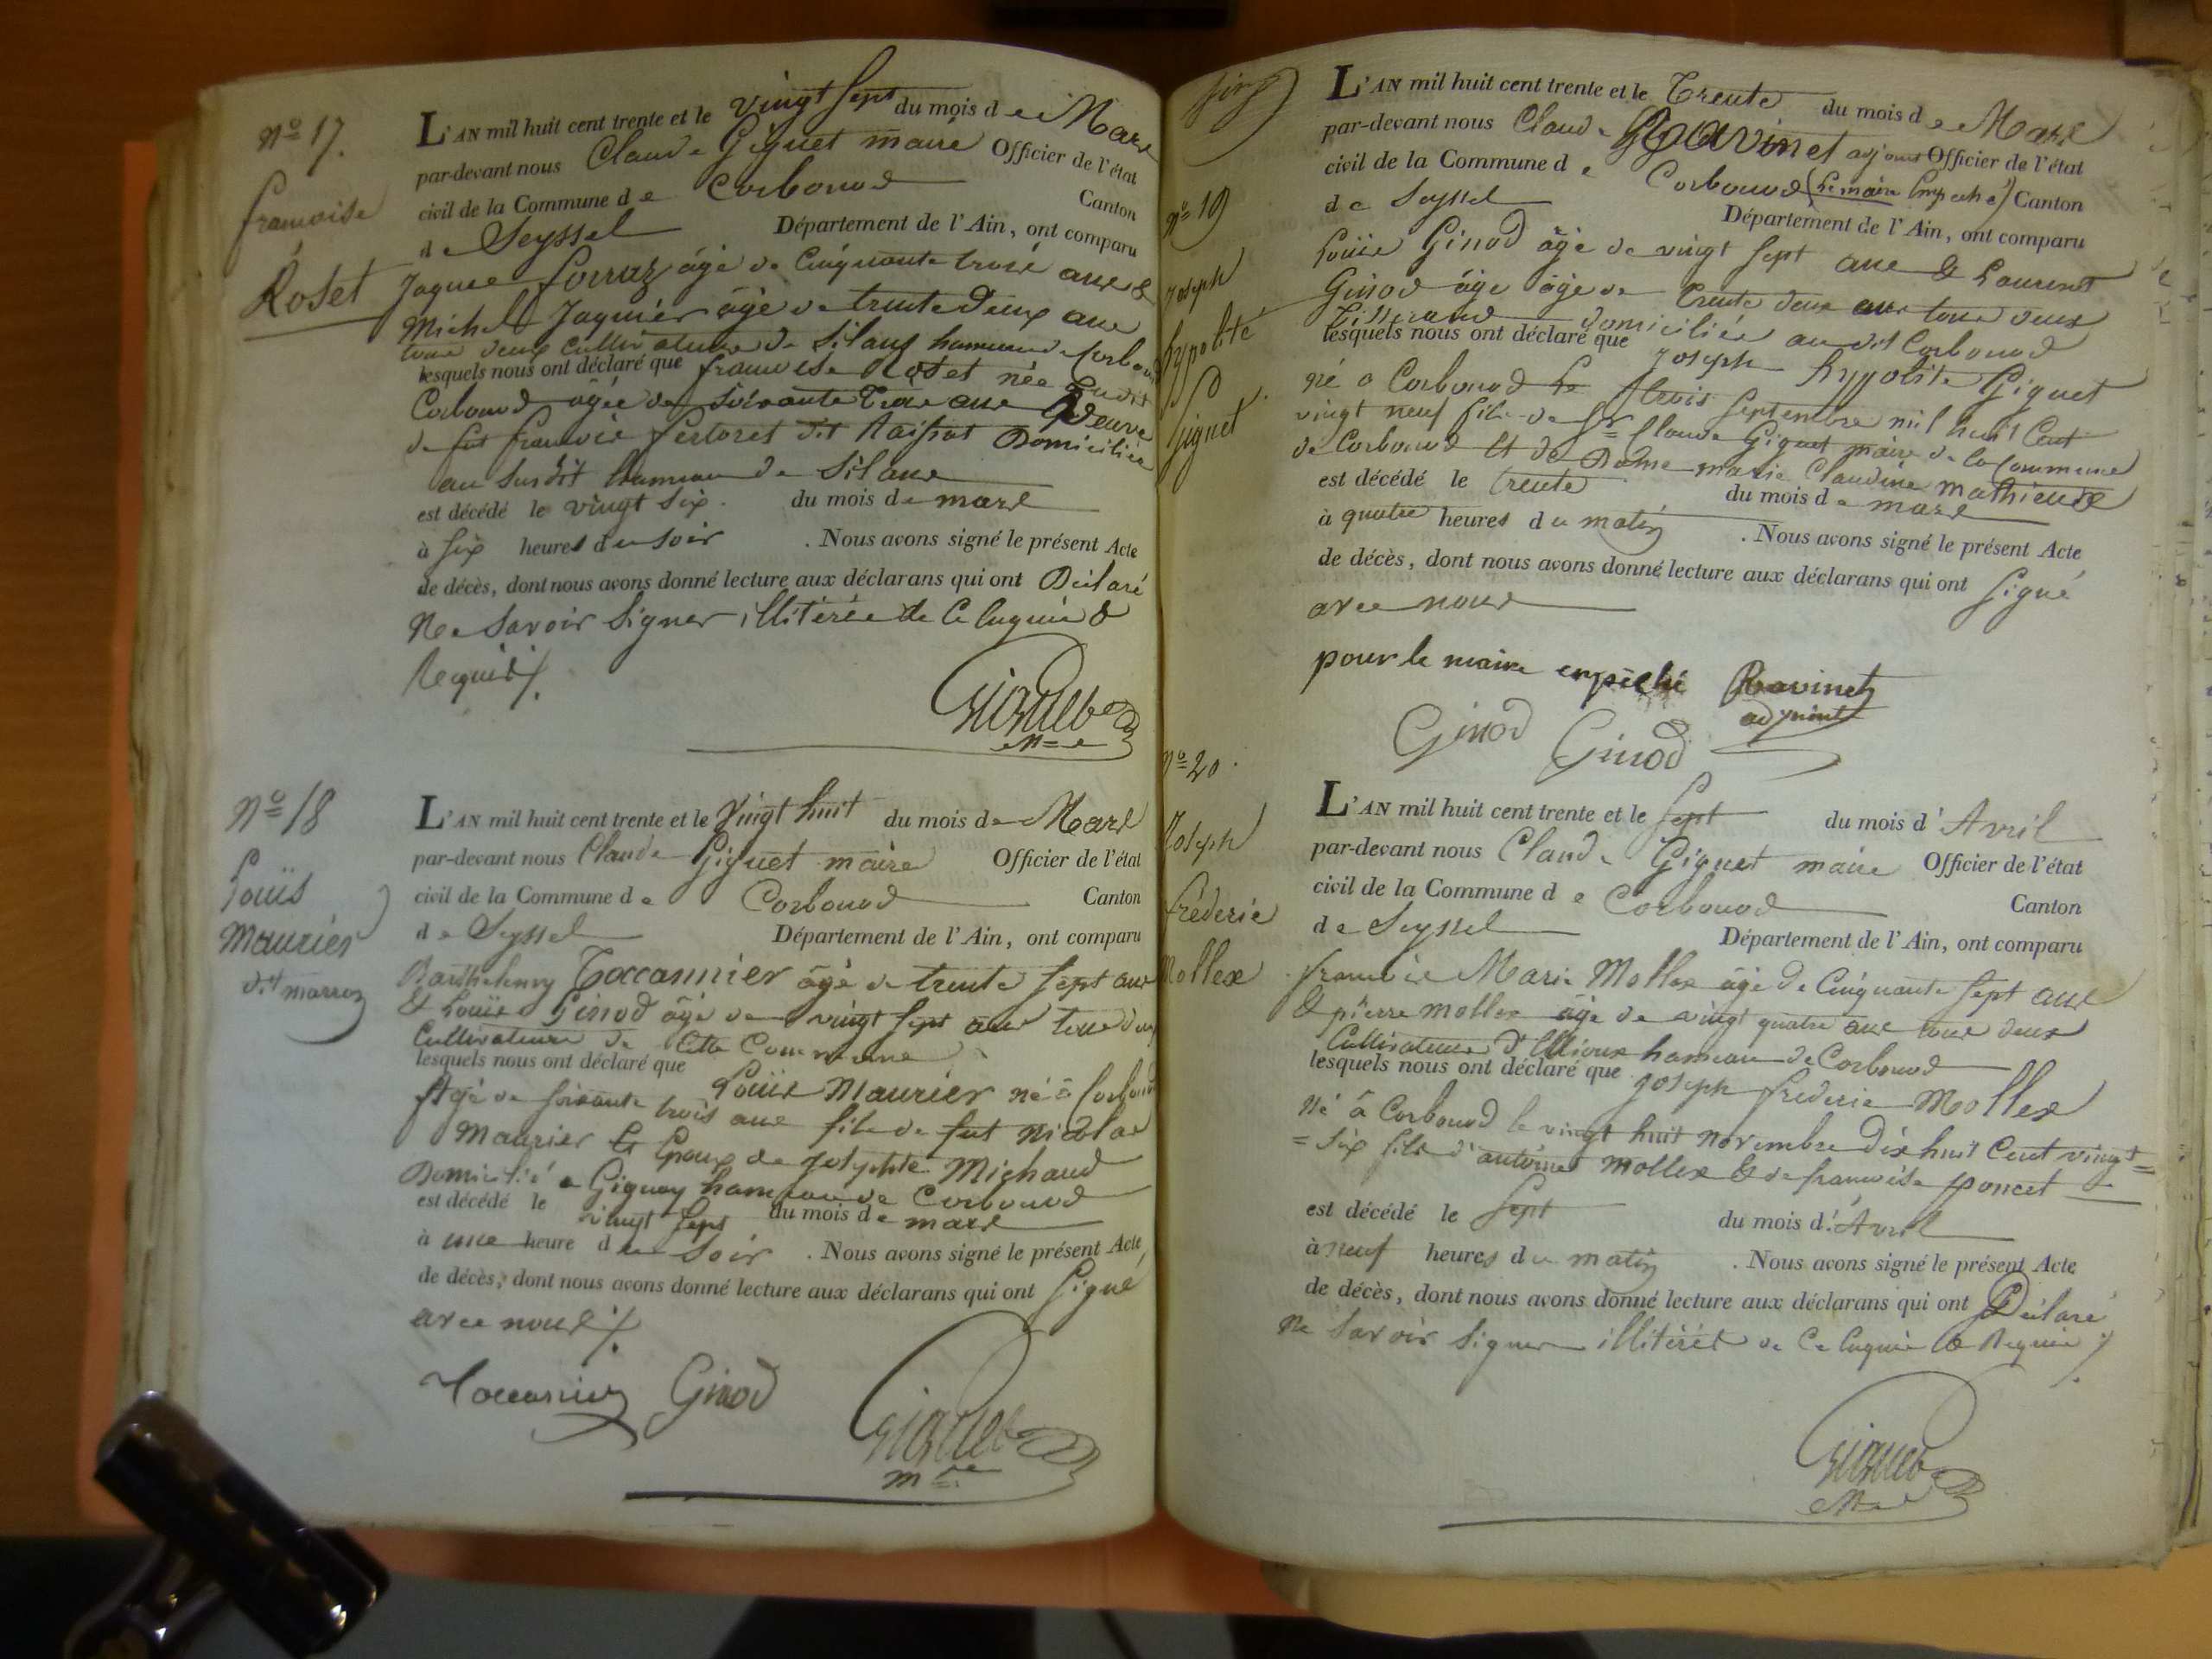 N° 17.
françoise
Roset
L'AN mil huit cent trente et le vingt sept du mois de Mars
par-devant nous Claude Giguet maire Officier de l'état
civil de la Commune de Corbonod Canton
de Seyssel Département de l'Ain, ont comparu
Jaques âgé de Cinquante trois ans &
Michel Jaquier âgé de trente deux ans
tous deux cultivateurs de Silans hameau de Corbonod
lesquels nous ont déclaré que françoise Roset née audit
Corbonod âgée de soixante trois ans Veuve
de fut françois dit Domiciliée
au susdit hameau de Silans
est décédé le vingt six du mois de mars
à six heures du soir . Nous avons signé le présent Acte
de décès, dont nous avons donné lecture aux déclarans qui ont Déclaré
Ne Savoir Signer illitérés de Ce Enquis &
Requis /.
Giguet
m=e
N° 18
Louis
Maurier
dit marron
L'AN mil huit cent trente et le Vingt huit du mois de Mars
par-devant nous Claude Giguet maire Officier de l'état
civil de la Commune de Corbonod Canton
de Seyssel Département de l'Ain, ont comparu
Barthelemy Toccannier âgé de trente sept ans
& Louis Ginod âgé de vingt sept ans tous deux
Cultivateurs de Cette Commune
lesquels nous ont déclaré que Louis Maurier né à Corbonod
Agé de soixante trois ans fils de fut Nicolas
Maurier Et Epoux de Josephte Michaud
Domicilié à Gignay hameau de Corbonod
est décédé le vingt sept du mois de mars
à une heure du Soir . Nous avons signé le présent Acte,
de décès, dont nous avons donné lecture aux déclarans qui ont Signé
avec nous /.
Toccanier Ginod Giguet
m=re
N° 19
joseph
hypolite
Giguet
L'AN mil huit cent trente et le Trente du mois de Mars
par-devant nous Claude Ravinet adjoint Officier de l'état
civil de la Commune de Corbonod (Le maire Empeché) Canton
de Seyssel Département de l'Ain, ont comparu
Louis Ginod âgé de vingt sept ans & Laurent
Ginod âgé âgé de trente deux ans tous deux
Tisserand domiciliés au dit Corbonod
lesquels nous ont déclaré que joseph hypolite Giguet
né à Corbonod Le trois Septembre mil huit Cent
vingt neuf fils de Sr Claude Giguet maire de la Commune
de Corbonod Et de Dame marie Claudine
est décédé le trente du mois de mars
à quatre heures du matin . Nous avons signé le présent Acte
de décès, dont nous avons donné lecture aux déclarans qui ont Signé
avec nous
pour le maire empêché Ravinet
adjoint
Ginod Ginod
N° 20.
Joseph
fréderic
Mollex
L'AN mil huit cent trente et le Sept du mois d'Avril
par-devant nous Claude Giguet maire Officier de l'état
civil de la Commune de Corbonod Canton
de Seyssel Département de l'Ain, ont comparu
françois Marie Mollex âgé de Cinquante sept ans
& pierre mollex âgé de vingt quatre ans tous deux
Cultivateurs hameau de Corbonod
lesquels nous ont déclaré que joseph frederic Mollex
Né à Corbonod le vingt huit Novembre Dix huit Cent vingt=
=Six fils d'antoine Mollex & de françoise poncet
est décédé le Sept du mois d'Avril
à neuf heures du matin . Nous avons signé le présent Acte
de décès, dont nous avons donné lecture aux déclarans qui ont Déclaré
Ne Savoir Signer illitérés de Ce Enquis & Requis /.
Giguet